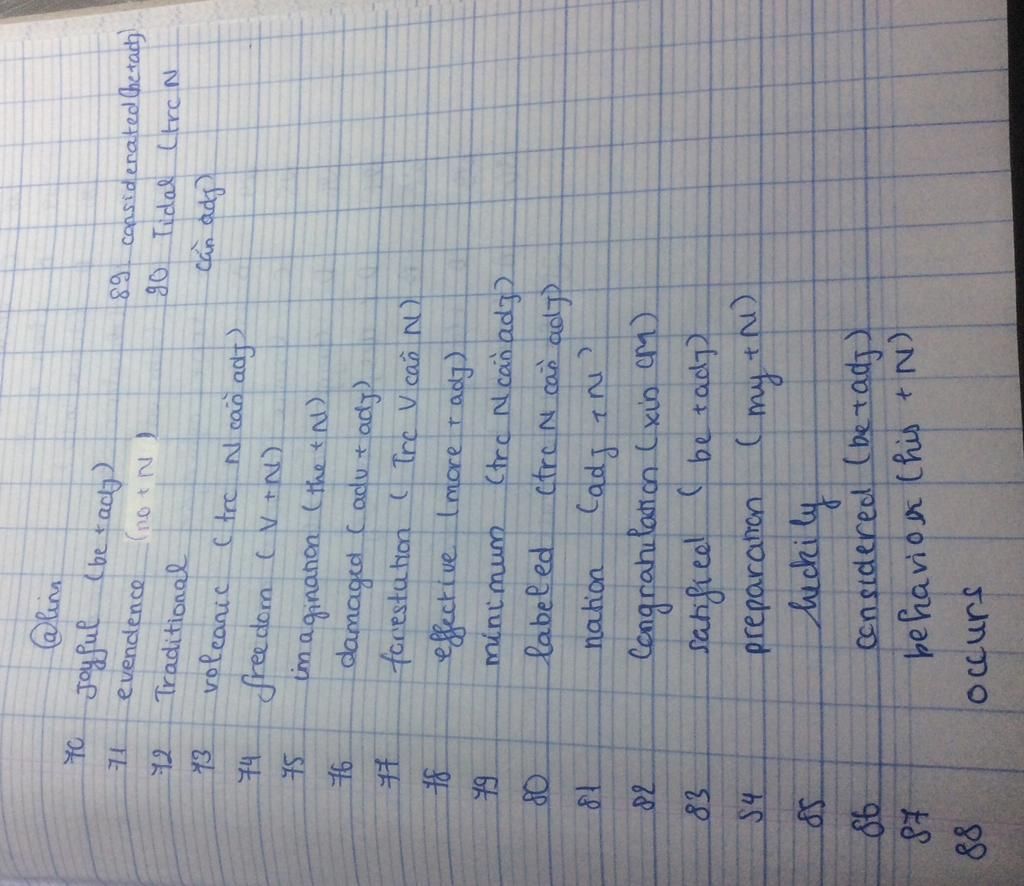 @linn
70 Joyful (be + adj)
71 evendence (no + N)
72 Traditional
73 volcanic (trc N cần adj)
74 freedom (V + N)
75 imagination (the + N)
76 damaged (adv + adj)
77 forestution (Trc V cần N)
78 effective (more + adj)
79 minimum (trc N cần adj)
80 labeled (trc N cần adj)
81 nation (adj + N)
82 Congratulation (xin CM)
83 satified (be + adj)
84 preparation (my + N)
85 luckily
86 considered (be + adj)
87 behavior (his + N)
88 occurs
89 considerated (be + adj)
90 Tidal (trc N
cần adj)